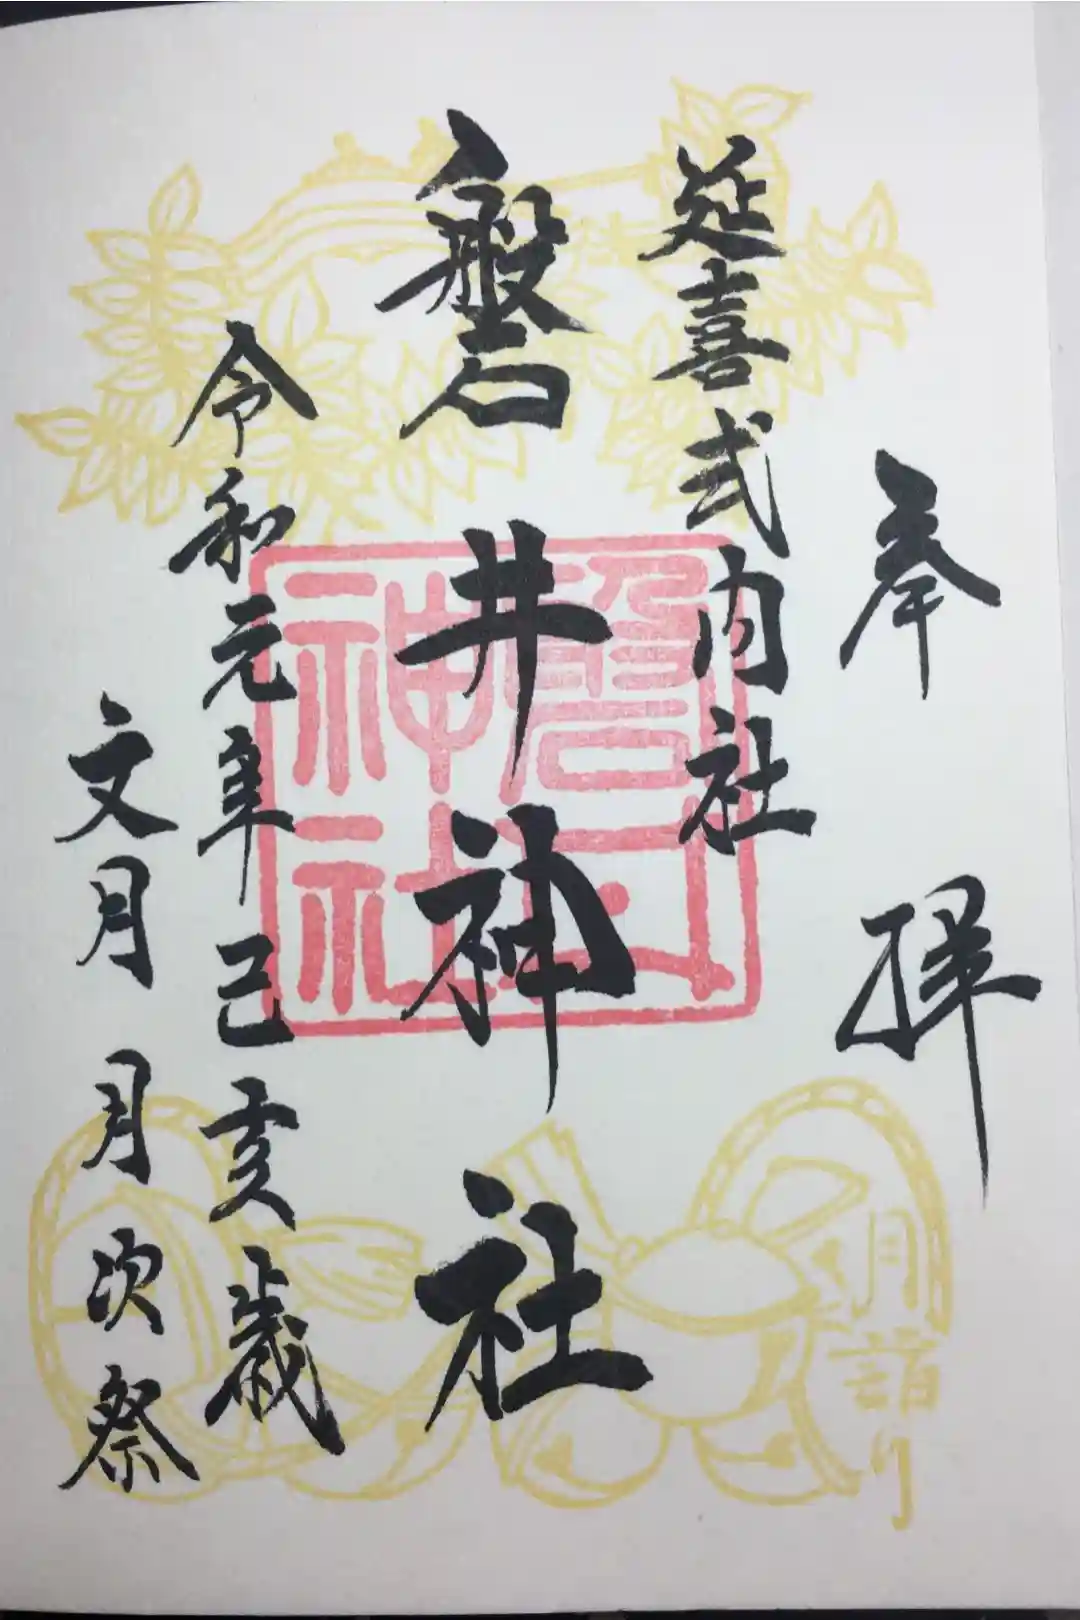 奉拝
延喜式内社
磐井神社
磐井神社
令和元年己亥歳
文月 月次祭
月詣り